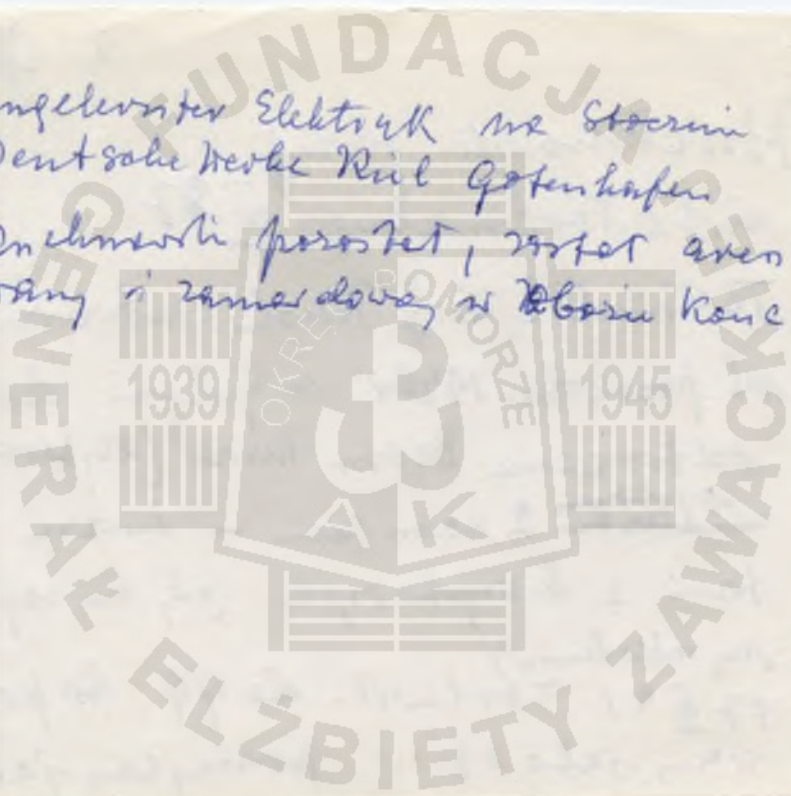 ngelernter Elektryk na Stoczni
Deutsche Werke Kiel Gotenhafen
pozostał, został ares
wany i zamordowany w Obozie Konc
FUNDACJA GENERAŁ ELŻBIETY ZAWACKIEJ
OKRĘG POMORZE
1939
1945
AK